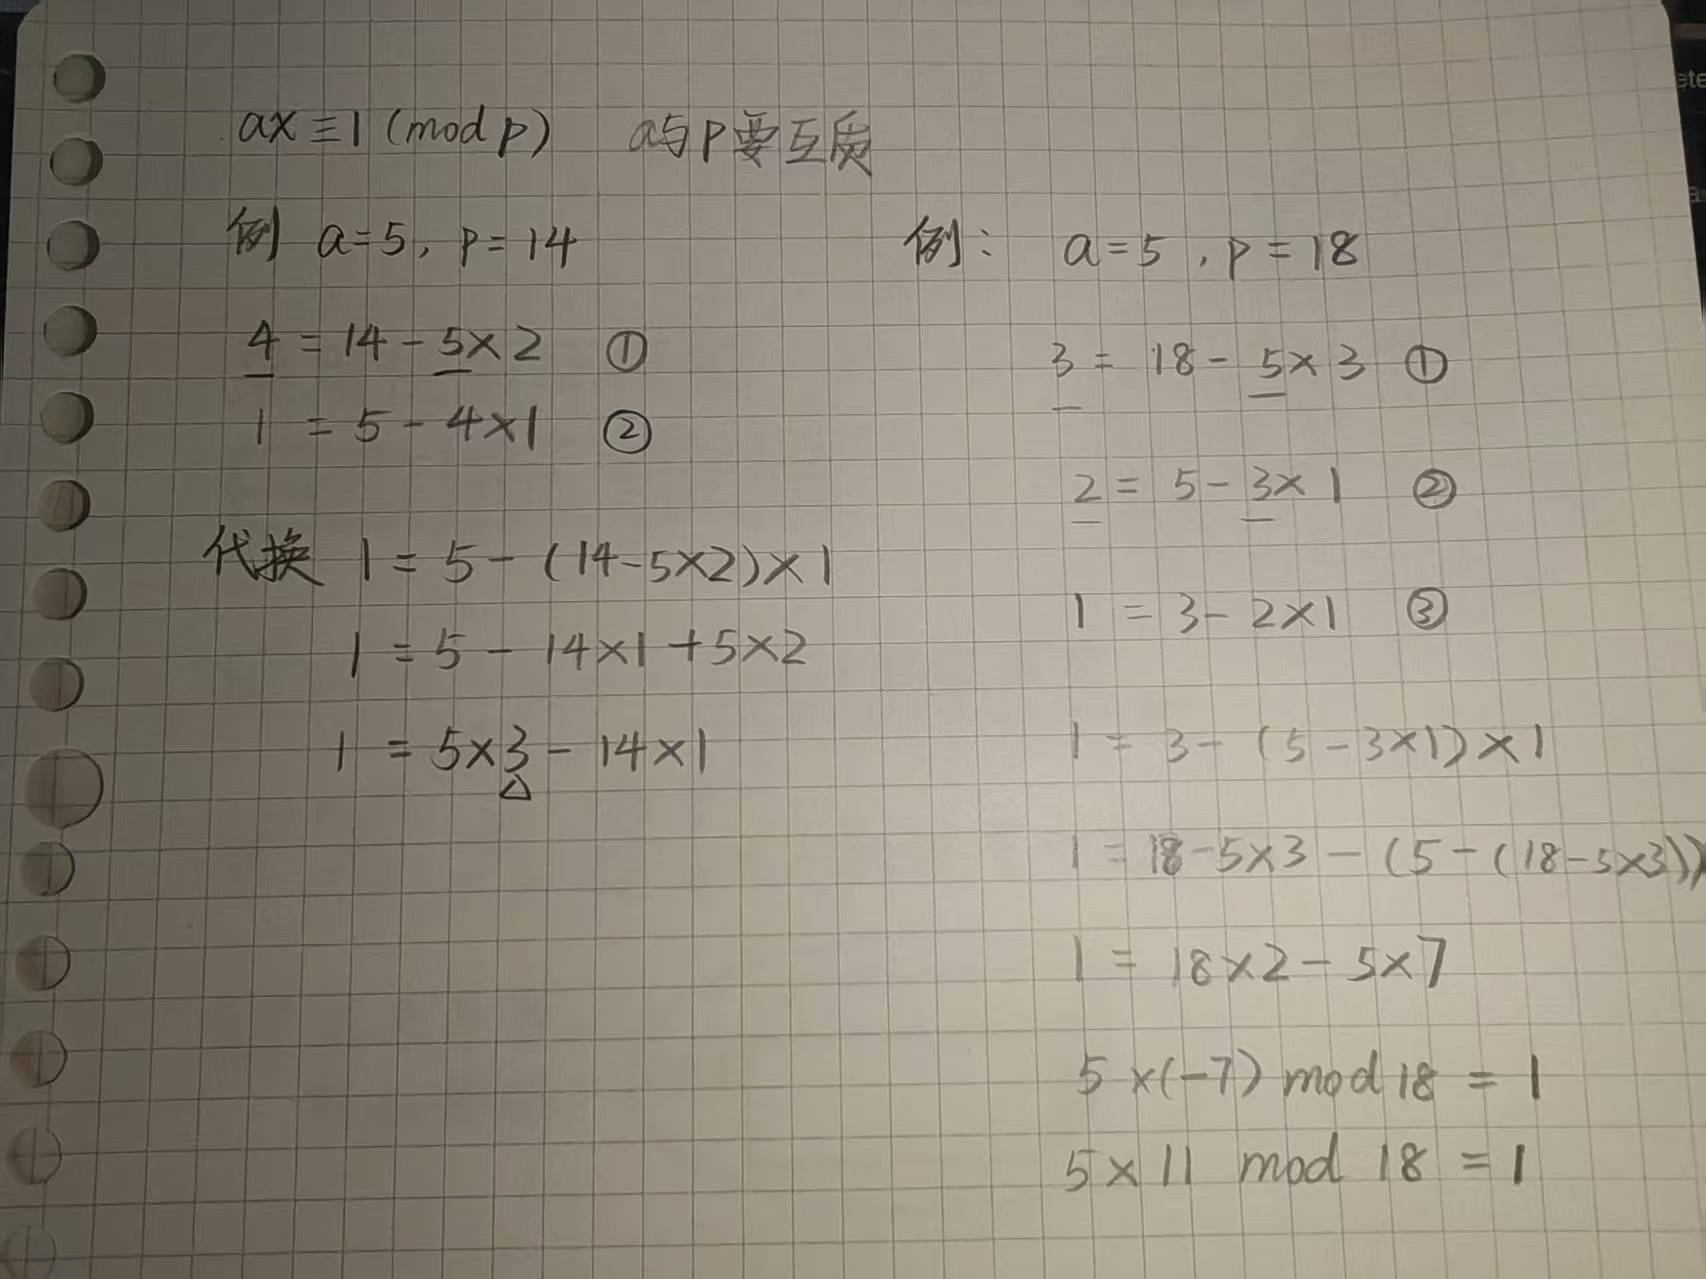 ax≡1(mod p) a与p要互质
例 a=5, p=14
4=14-5×2 ①
1=5-4×1 ②
代换 1=5-(14-5×2)×1
1=5-14×1+5×2
1=5×3-14×1
△
例: a=5,p=18
3=18-5×3 ①
2=5-3×1 ②
1=3-2×1 ③
1=3-(5-3×1)×1
1=18-5×3-(5-(18-5×3))
1=18×2-5×7
5×(-7) mod 18=1
5×11 mod 18=1